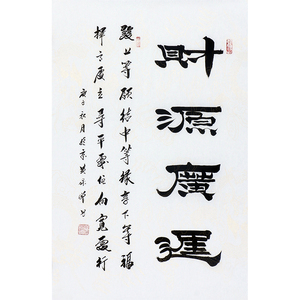 財源廣進
發上等願結中等緣享下等福
擇高處立尋平處住向寬處行
庚子秋月於京